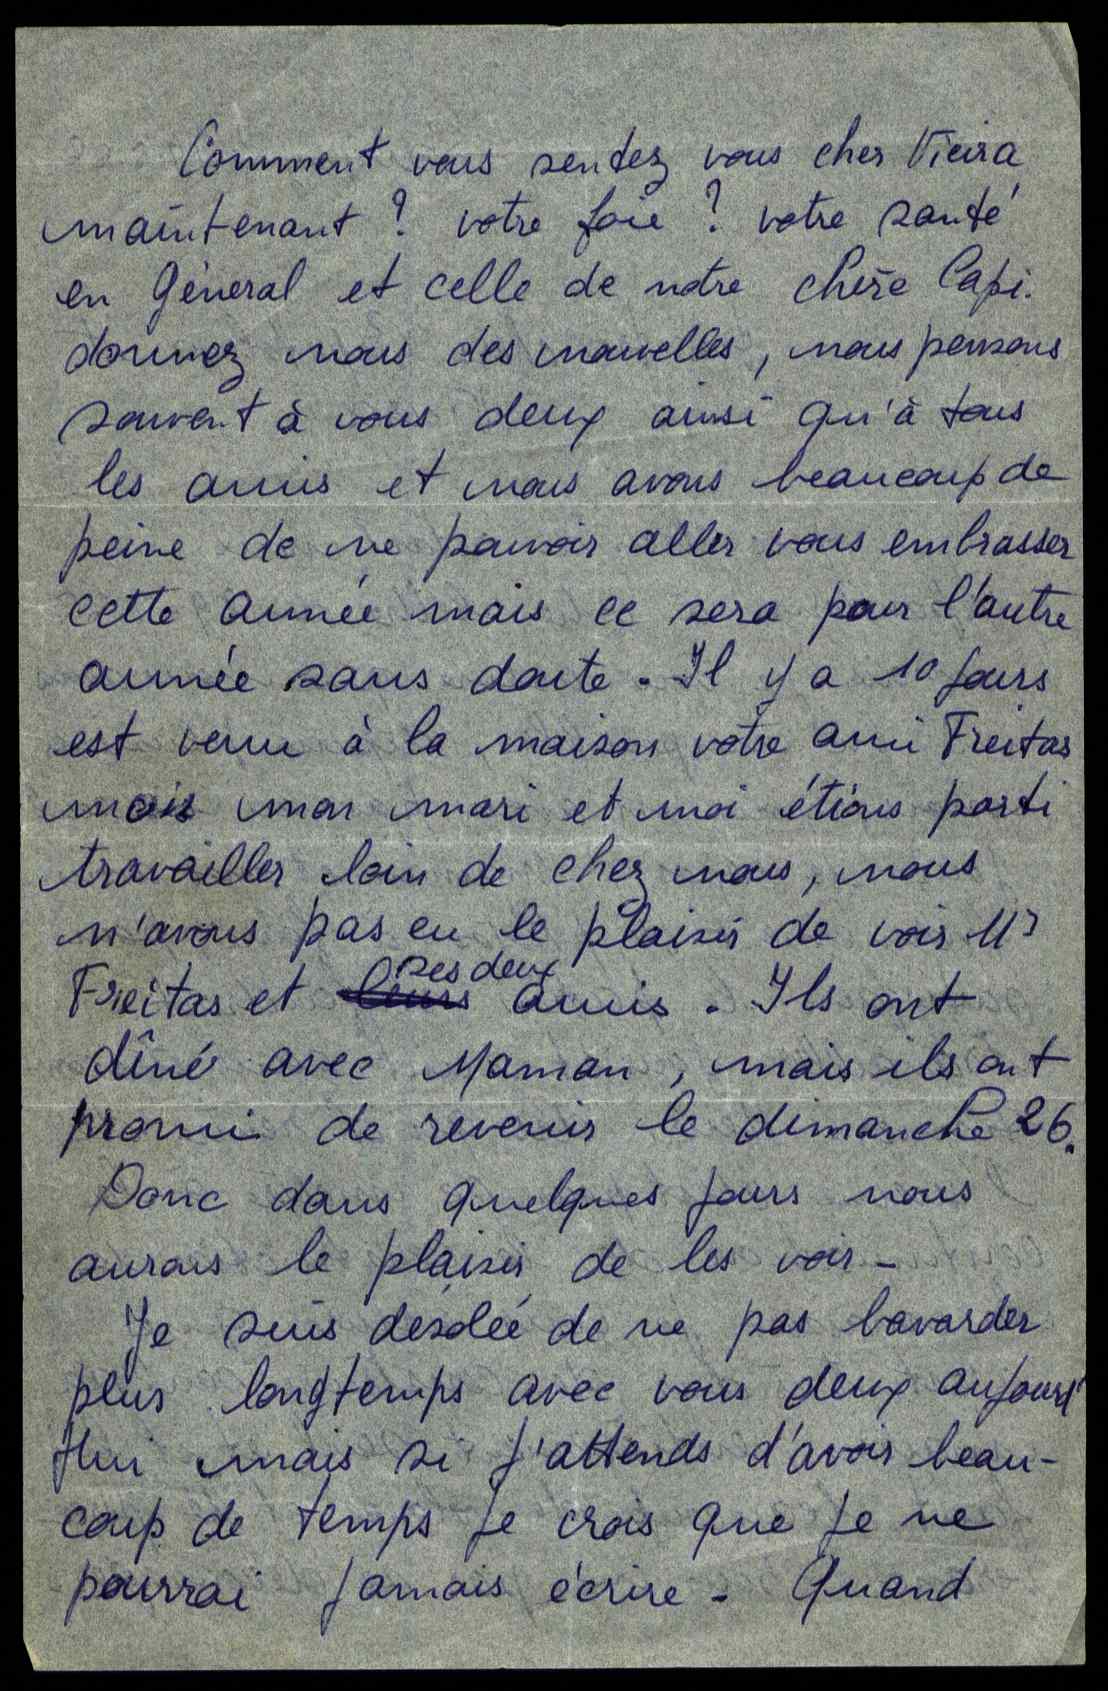 Comment vous sentez vous cher Vieira
maintenant ? votre foie ? votre santé
en Géneral et celle de notre chère Capi.
donnez nous des nouvelles, nous pensons
souvent à vous deux ainsi qu'à tous
les amis et nous avons beaucoup de
peine de ne pouvoir aller vous embrasser
cette année mais ce sera pour l'autre
année sans doute. Il y a 10 jours
est venu à la maison votre ami Freitas
mais mon mari et moi étions parti
travailler loin de chez nous, nous
n'avons pas eu le plaisir de voir Mr
Freitas et leurs ses deux amis. Ils ont
dîné avec Maman, mais ils ont
promi de revenir le dimanche 26.
Donc dans quelques jours nous
aurons le plaisir de les voir -
Je suis désolée de ne pas bavarder
plus longtemps avec vous deux aujourd'
hui mais si j'attends d'avoir beau-
coup de temps je crois que je ne
pourrai jamais écrire - Quand